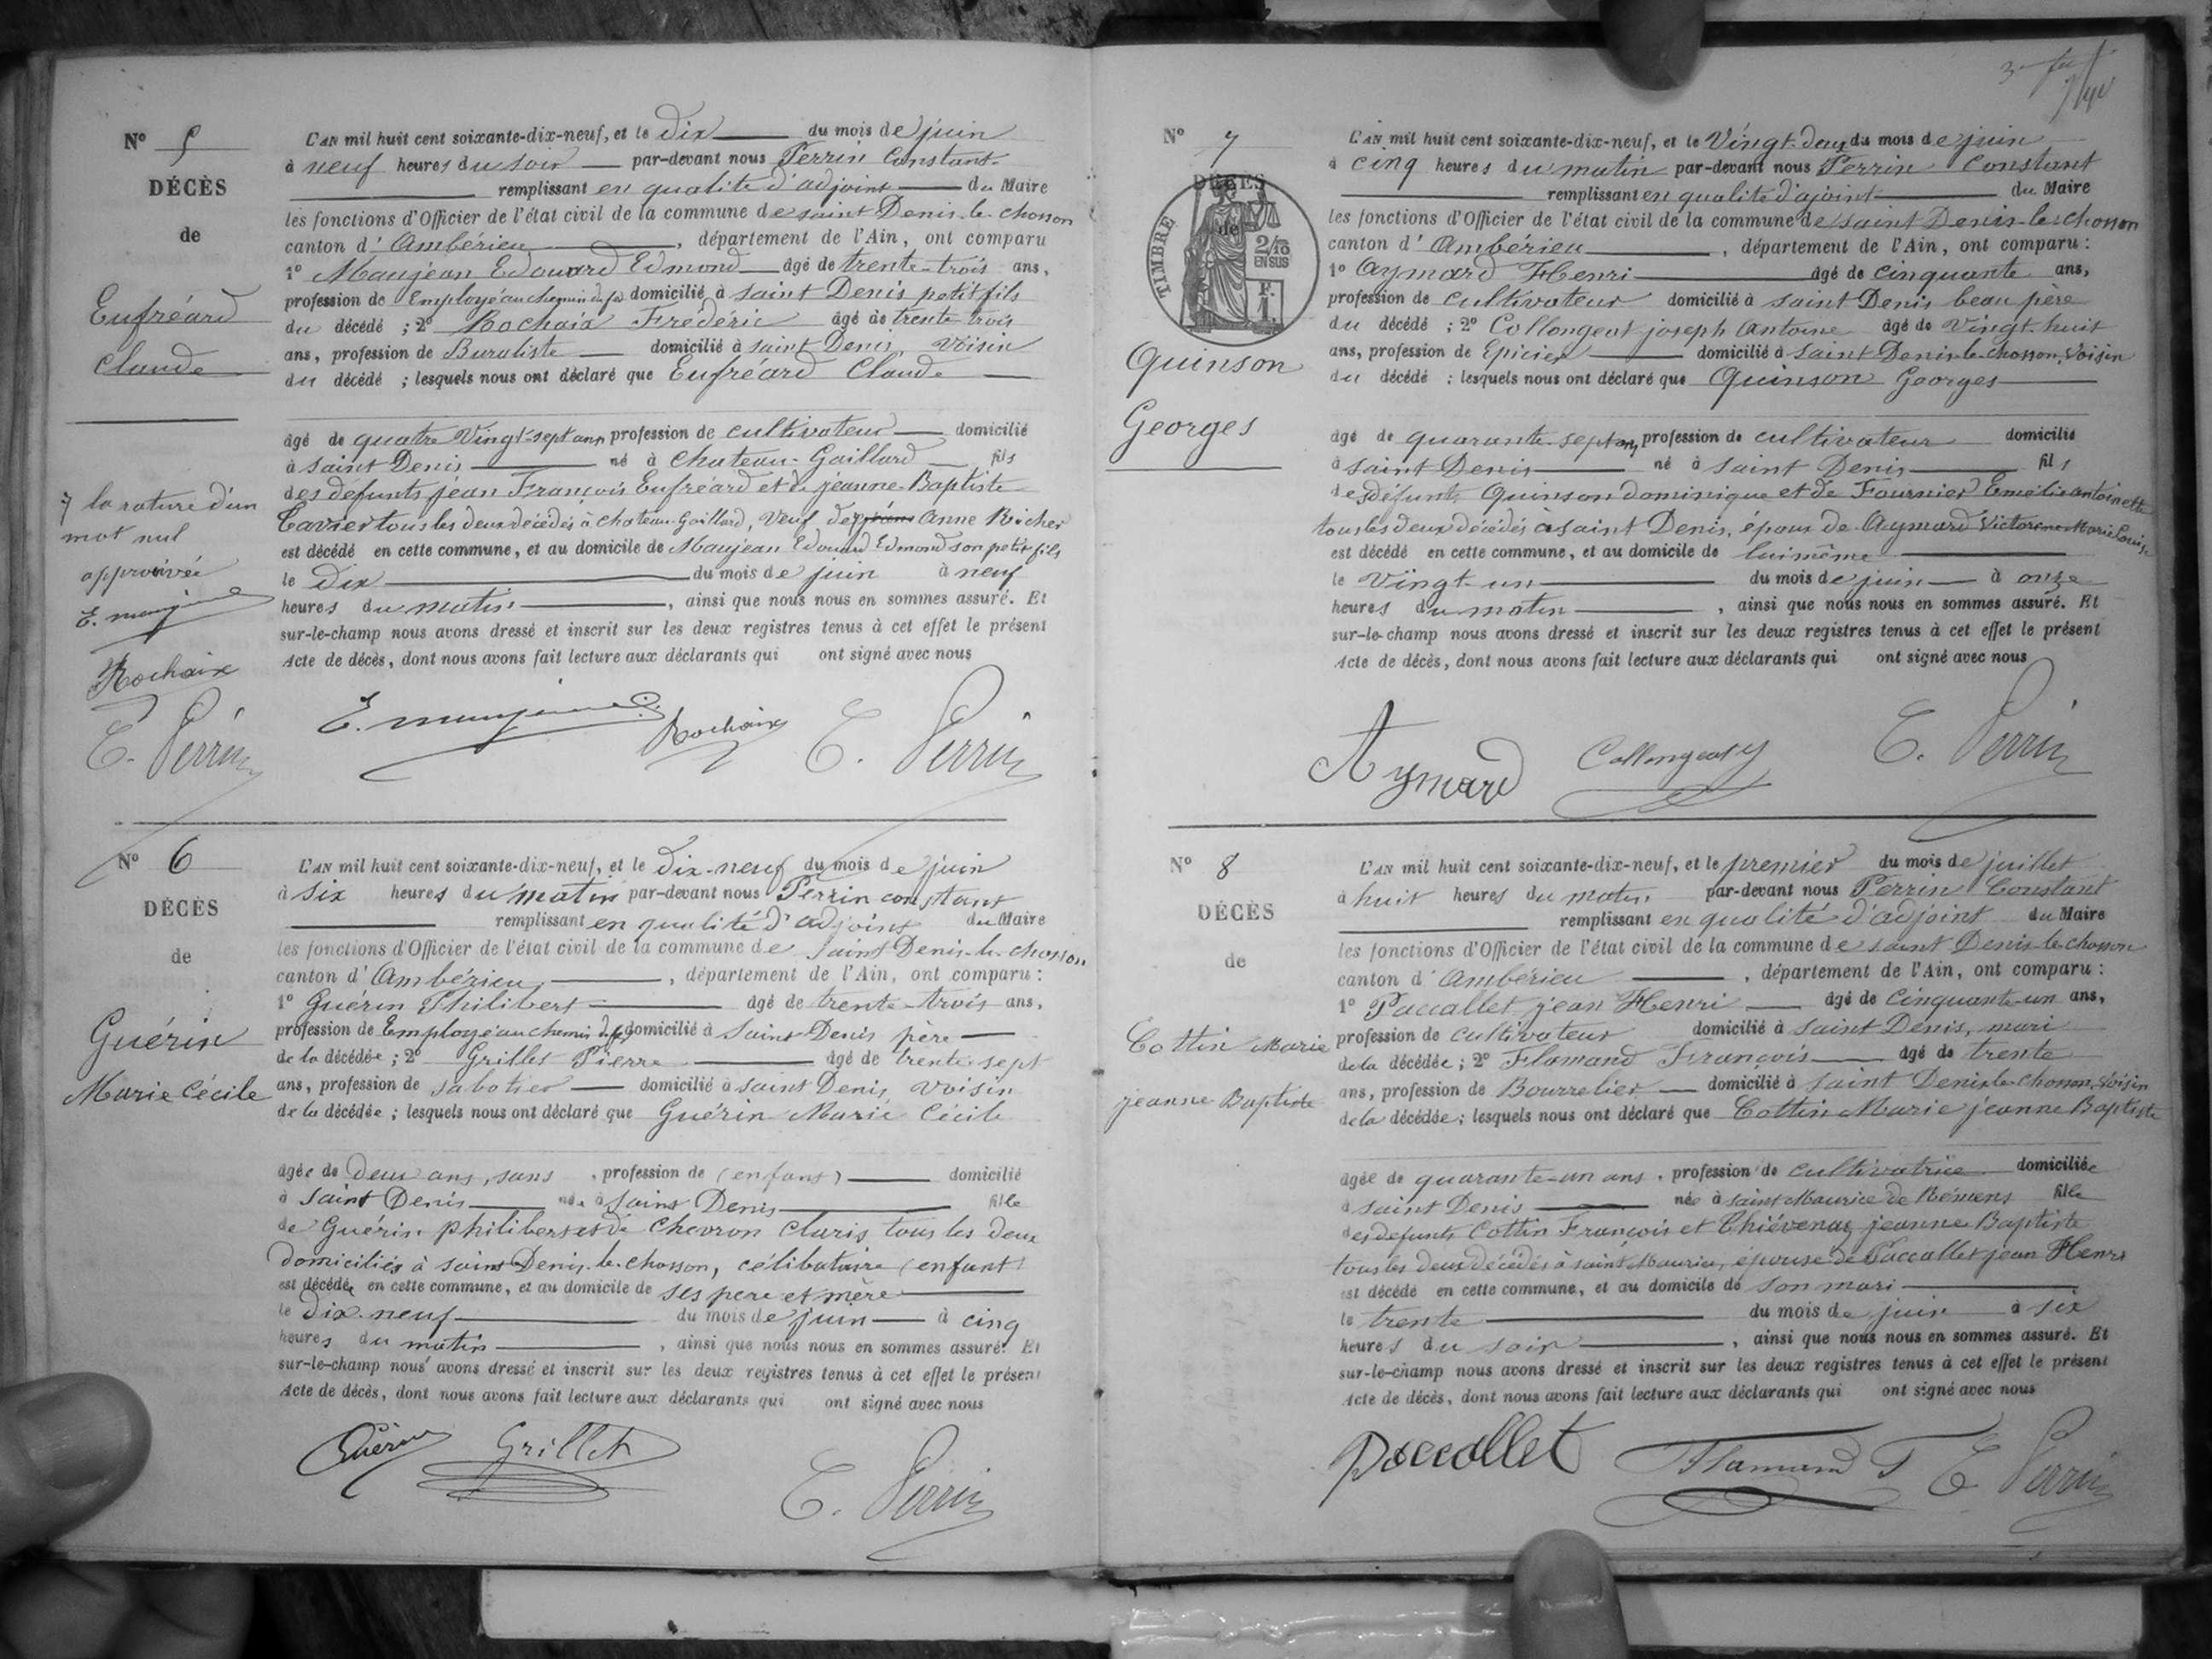 N° 5
DÉCÈS
de
Eufréard
Claude
L'AN mil huit cent soixante-dix-neuf, et le Dix du mois de juin
à neuf heures du soir par-devant nous Perrin Constant
remplissant en qualité d'adjoint du Maire
les fonctions d'Officier de l'état civil de la commune de saint Denis-le-chosson
canton d'Ambérieu, département de l'Ain, ont comparu
1° Maujean Edouard Edmond âgé de trente-trois ans,
profession de Employé au chemin de fer domicilié à saint Denis petit fils
du décédé ; 2° Rochaix Frédéric âgé de trente trois
ans, profession de Buraliste domicilié à saint Denis voisin
du décédé ; lesquels nous ont déclaré que Eufréard Claude
âgé de quatre Vingt-sept ans profession de cultivateur domicilié
à saint Denis né à Chateau-Gaillard fils
des défunts jean François Eufréard et de jeanne-Baptiste
tous les deux décédés à chateau-Gaillard, Veuf de Anne Richer
est décédé en cette commune, et au domicile de Maujean Edouard Edmond son petit fils
le Dix du mois de juin à neuf
heures du matin, ainsi que nous nous en sommes assuré. Et
sur-le-champ nous avons dressé et inscrit sur les deux registres tenus à cet effet le présent
Acte de décès, dont nous avons fait lecture aux déclarants qui ont signé avec nous
la rature d'un
mot nul
approuvée
E. maujean
Rochaix
C. Perrin
E. maujean Rochaix C. Perrin
N° 6
DÉCÈS
de
Guérin
Marie Cécile
L'AN mil huit cent soixante-dix-neuf, et le Dix-neuf du mois de juin
à six heures du matin par-devant nous Perrin constant
remplissant en qualité d'adjoint du Maire
les fonctions d'Officier de l'état civil de la commune de saint Denis-le-chosson
canton d'Ambérieu, département de l'Ain, ont comparu :
1° Guérin Philibert âgé de trente-trois ans,
profession de Employé au chemin de fer domicilié à saint Denis père
de la décédée ; 2° Grillet Pierre âgé de trente-sept
ans, profession de sabotier domicilié à saint Denis, voisin
de la décédée ; lesquels nous ont déclaré que Guérin Marie Cécile
âgée de deux ans, sans profession de (enfant) domicilié
à saint Denis née à saint Denis fille
de Guérin philibert et de Chevron Claris tous les deux
domiciliés à saint Denis-le-chosson, célibataire (enfant)
est décédée en cette commune, et au domicile de ses pere et mère
le Dix-neuf du mois de juin à cinq
heures du matin, ainsi que nous nous en sommes assuré. Et
sur-le-champ nous avons dressé et inscrit sur les deux registres tenus à cet effet le présent
Acte de décès, dont nous avons fait lecture aux déclarants qui ont signé avec nous
Guérin Grillet
C. Perrin
N° 7
DÉCÈS
de
TIMBRE
2/10
EN SUS
F.
1.
Quinson
Georges
L'AN mil huit cent soixante-dix-neuf, et le Vingt-deux du mois de juin
à cinq heures du matin par-devant nous Perrin Constant
remplissant en qualité d'ajoint du Maire
les fonctions d'Officier de l'état civil de la commune de saint Denis-le-chosson
canton d'Ambérieu, département de l'Ain, ont comparu :
1° Aymard Henri âgé de cinquante ans,
profession de cultivateur domicilié à saint Denis beau père
du décédé ; 2° Collongeat joseph Antoine âgé de Vingt-huit
ans, profession de Epicier domicilié à saint Denis-le-chosson, Voisin
du décédé ; lesquels nous ont déclaré que Quinson Georges
âgé de quarante-sept ans, profession de cultivateur domicilié
à saint Denis né à saint Denis fils
des défunts Quinson dominique et de Fournier Emélie antoinette
tous les deux décédés à saint Denis, époux de Aymard Victorine Marie Louise
est décédé en cette commune, et au domicile de lui même
le Vingt-un du mois de juin à onze
heures du matin, ainsi que nous nous en sommes assuré. Et
sur-le-champ nous avons dressé et inscrit sur les deux registres tenus à cet effet le présent
Acte de décès, dont nous avons fait lecture aux déclarants qui ont signé avec nous
Aymard Collongeat C. Perrin
N° 8
DÉCÈS
de
Cottin Marie
jeanne Baptiste
L'AN mil huit cent soixante-dix-neuf, et le premier du mois de juillet
à huit heures du matin par-devant nous Perrin Constant
remplissant en qualité d'adjoint du Maire
les fonctions d'Officier de l'état civil de la commune de saint Denis-le-chosson
canton d'Ambérieu, département de l'Ain, ont comparu :
1° Paccallet jean Henri âgé de cinquante-un ans,
profession de cultivateur domicilié à saint Denis, mari
de la décédée ; 2° Flamand François âgé de trente
ans, profession de Bourrelier domicilié à saint Denis-le-chosson, Voisin
de la décédée ; lesquels nous ont déclaré que Cottin Marie jeanne Baptiste
âgée de quarante-un ans, profession de cultivatrice domiciliée
à saint Denis née à saint Maurice de Rémens fille
des defunts Cottin François et Thiévenaz jeanne Baptiste
tous les deux décédés à saint Maurice, épouse de Paccallet jean Henri
est décédé en cette commune, et au domicile de son mari
le trente du mois de juin à six
heures du soir, ainsi que nous nous en sommes assuré. Et
sur-le-champ nous avons dressé et inscrit sur les deux registres tenus à cet effet le présent
Acte de décès, dont nous avons fait lecture aux déclarants qui ont signé avec nous
Paccallet Flamand F C Perrin